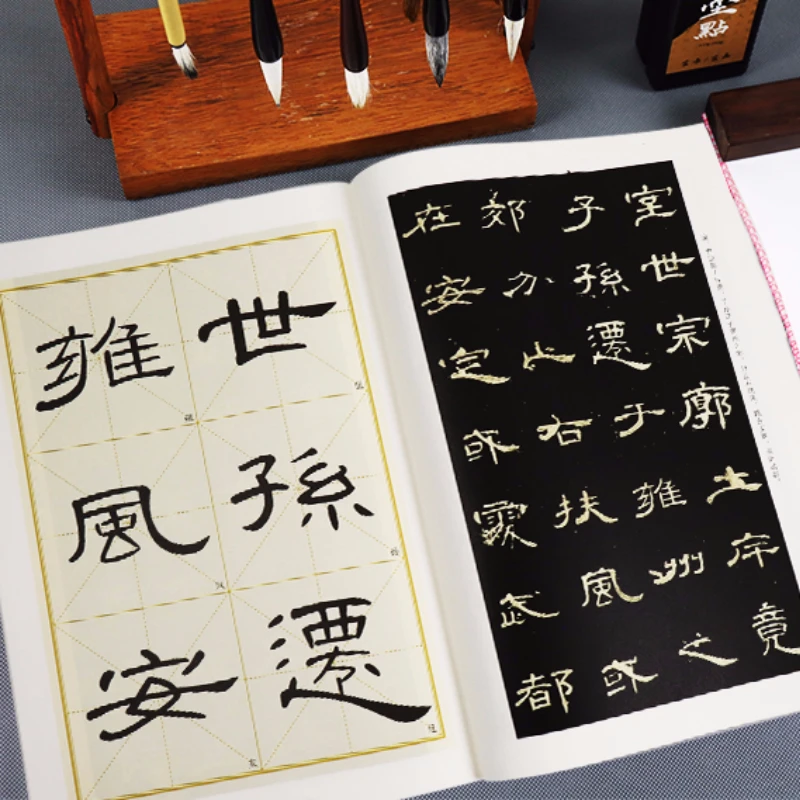 室世宗廓土斥竟
子孫遷于雍州之
郊分止右扶風或
在安定或處武都
世孫遷
雍風安
點